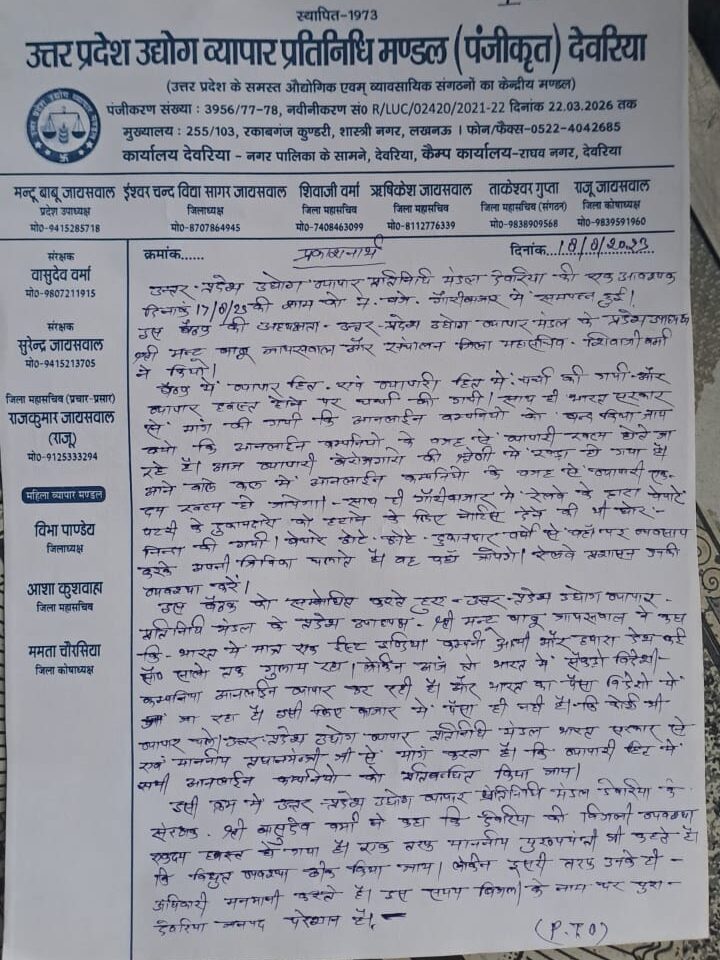 स्थापित-1973
उत्तर प्रदेश उद्योग व्यापार प्रतिनिधि मण्डल (पंजीकृत) देवरिया
(उत्तर प्रदेश के समस्त औद्योगिक एवम् व्यावसायिक संगठनों का केन्द्रीय मण्डल)
पंजीकरण संख्या : 3956/77-78, नवीनीकरण सं0 R/LUC/02420/2021-22 दिनांक 22.03.2026 तक
मुख्यालय : 255/103, रकाबगंज कुण्डरी, शास्त्री नगर, लखनऊ । फोन/फैक्स-0522-4042685
कार्यालय देवरिया - नगर पालिका के सामने, देवरिया, कैम्प कार्यालय-राघव नगर, देवरिया
मन्टू बाबू जायसवाल ईश्वर चन्द विद्या सागर जायसवाल शिवाजी वर्मा ऋषिकेश जायसवाल ताकेश्वर गुप्ता राजू जायसवाल
प्रदेश उपाध्यक्ष जिलाध्यक्ष जिला महासचिव जिला महासचिव जिला महासचिव (संगठन) जिला कोषाध्यक्ष
मो0-9415285718 मो0-8707864945 मो0-7408463099 मो0-8112776339 मो0-9838909568 मो0-9839591960
संरक्षक
वासुदेव वर्मा
मो0-9807211915
संरक्षक
सुरेन्द्र जायसवाल
मो0-9415213705
जिला महासचिव (प्रचार-प्रसार)
राजकुमार जायसवाल
(राजू)
मो0-9125333294
महिला व्यापार मण्डल
विभा पाण्डेय
जिलाध्यक्ष
आशा कुशवाहा
जिला महासचिव
ममता चौरसिया
जिला कोषाध्यक्ष
क्रमांक...... प्रकाशनार्थ दिनांक.18/6/2023
उत्तर-प्रदेश उद्योग व्यापार प्रतिनिधि मंडल देवरिया की एक आवश्यक
दिनांक 17/6/23 की शाम को गौरीबाजार में सम्पन्न हुई।
इस बैठक की अध्यक्षता उत्तर-प्रदेश उद्योग व्यापार मंडल के प्रदेश उपाध्यक्ष
श्री मन्टू बाबू जायसवाल और संचालन जिला महासचिव शिवाजी वर्मा
ने किया।
बैठक में व्यापार हित एवं व्यापारी हित में चर्चा की गयी और
व्यापार ध्वस्त होने पर चर्चा की गयी। साथ ही भारत सरकार
से मांग की गयी कि आनलाईन कम्पनियो को बन्द किया जाय
क्यो कि आनलाईन कम्पनियो के वजह से व्यापारी खत्म होते जा
रहे हैं। आज व्यापारी बेरोजगारो की श्रेणी में खड़ा हो गया है।
आने वाले कल में आनलाईन कम्पनियो के वजह से व्यापारी एक-
दम खत्म हो जायेगा। साथ ही गौरीबाजार में रेलवे के द्वारा
पटरी के दुकानदारो को हटाने के लिए नोटिस देने की भी घोर
निन्दा की गयी। छोटे-छोटे दुकानदार वर्षो से वहाँ पर व्यवसाय
करके अपनी जिविका चलाते हैं। वह कहाँ जायेगे। रेलवे प्रशासन उनकी
व्यवस्था करें।
इस बैठक को सम्बोधित करते हुए उत्तर-प्रदेश उद्योग व्यापार
प्रतिनिधि मंडल के प्रदेश उपाध्यक्ष श्री मन्टू बाबू जायसवाल ने कहा
कि भारत में मात्र एक ईस्ट इण्डिया कम्पनी आयी और हमारा देश कई
सौ सालो तक गुलाम रहा। लेकिन आज तो भारत में सैकड़ो विदेशी
कम्पनिया आनलाईन व्यापार कर रही हैं। और भारत का पैसा विदेशो में
जा रहा है। इसी लिए बाजार में पैसा ही नही है। कि कोई भी
व्यापार चले। उत्तर-प्रदेश उद्योग व्यापार प्रतिनिधि मंडल भारत सरकार से
एवं माननीय प्रधानमन्त्री जी से मांग करता है। कि व्यापारी हित में
सभी आनलाईन कम्पनियो को प्रतिबन्धित किया जाय।
इसी क्रम में उत्तर-प्रदेश उद्योग व्यापार प्रतिनिधि मंडल देवरिया के
संरक्षक श्री वासुदेव वर्मा ने कहा कि देवरिया की बिजली व्यवस्था
एकदम ध्वस्त हो गया है। एक तरफ माननीय मुख्यमंत्री जी कहते है
कि विद्युत व्यवस्था ठीक किया जाय। लेकिन दूसरी तरफ उनके ही
अधिकारी मनमानी करते हैं। इस समय बिजली के नाम पर पूरा
देवरिया जनपद परेशान है।
(P.T.O)